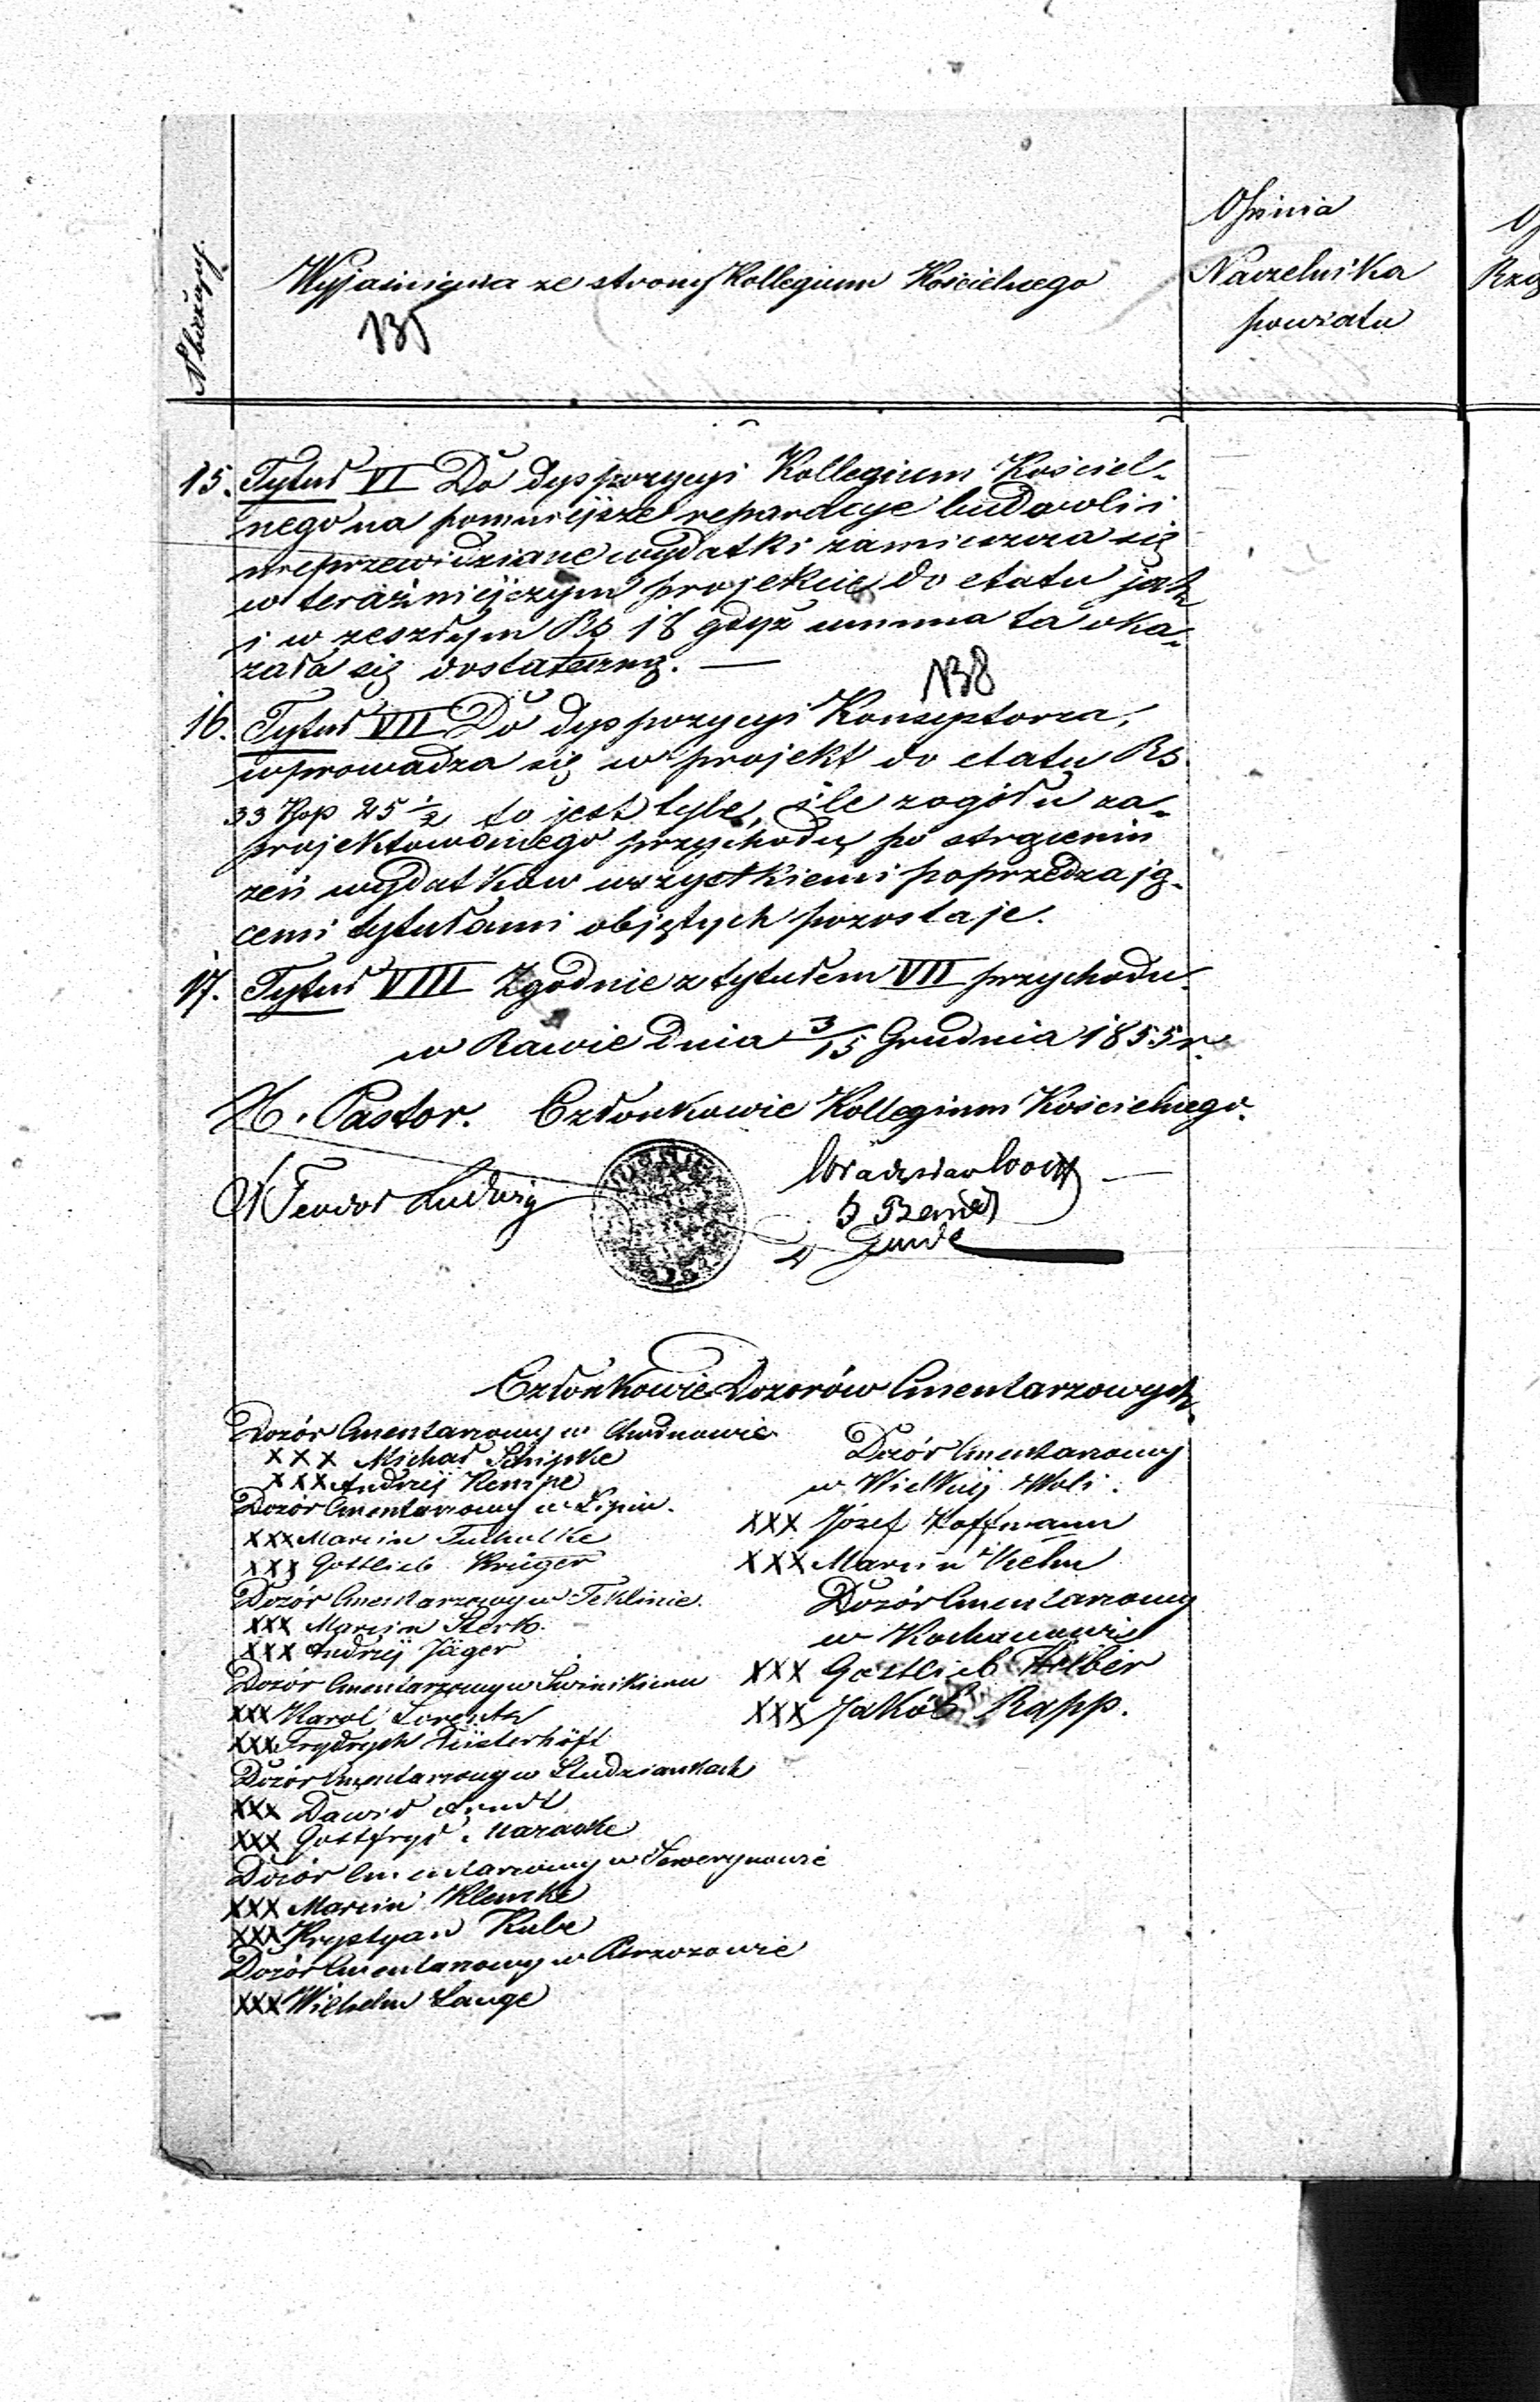 N bieżący.
Wyjaśnienia ze strony Kollegium Kościelnego
135
Opinia
Naczelnika
powiatu
15. Tytuł VI Do dyspozycyi Kollegium Kościel-
nego na pomniejsze reparacye budowli i
nieprzewidziane wydatki zamieszcza się
w teraźniejszym projekcie do etatu jak
i w zeszłym Rs 18 gdyż summa ta oka-
zała się dostateczną. —
138
16. Tytuł VII Do dyspozycyi Konsystorza,
wprowadza się w projekt do etatu Rs
33 Kop 25 1/2 to jest tyle, ile z ogółu za-
projektowanego przychodu po strąceniu
zeń wydatków wszystkiemi poprzedzają-
cemi tytułami objętych pozostaje.
17. Tytuł VIII Zgodnie z tytułem VII przychodu.
w Rawie dnia 3/15 Grudnia 1855 r.
Pastor. Członkowie Kollegium Kościelnego.
Teodor Ludwig
Członkowie Dozorów Cmentarzowych
Dozór Cmentarzowy w Chudnowie
XXX Michał Schipke
XXX Andrzéj Hempe
Dozór Cmentarzowy w Lipiu.
XXX Marcin Tuchulke
XXX Gottlieb Krüger
Dozór Cmentarzowy w Teklinie.
XXX Marcin Sterk.
XXX Andrzéj Jäger
Dozór Cmentarzowy w
XXX Karol Lorentz
XXX Frydrych Düsterhöft
Dozór Cmentarzowy w Studziankach
XXX Dawid Arndt
XXX Gottfryd
Dozór Cmentarzowy w Sewerynowie
XXX Marcin Klemke
XXX Krystyan Kube
Dozór Cmentarzowy w
XXX Wilhelm Lange
Dozór Cmentarzowy
w Wielkiéj Woli.
XXX Józef Hoffmann
XXX Marcin Kelm
Dozór Cmentarzowy
w Kochanowie
XXX Gottlieb
XXX Jakób Rapp.